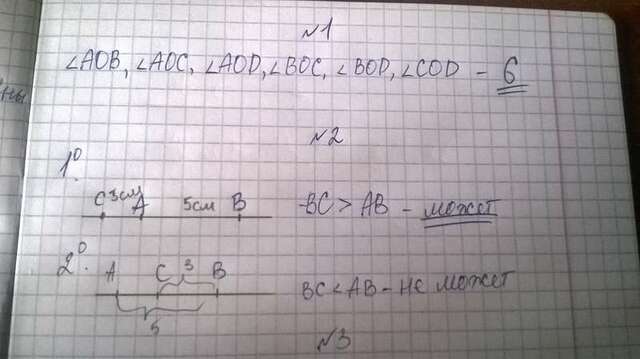 №1
∠AOB, ∠AOC, ∠AOD, ∠BOC, ∠BOD, ∠COD - 6
№2
1°.
C 3см A 5см B
BC > AB - может
2°.
A C 3 B
5
BC < AB - не может
№3